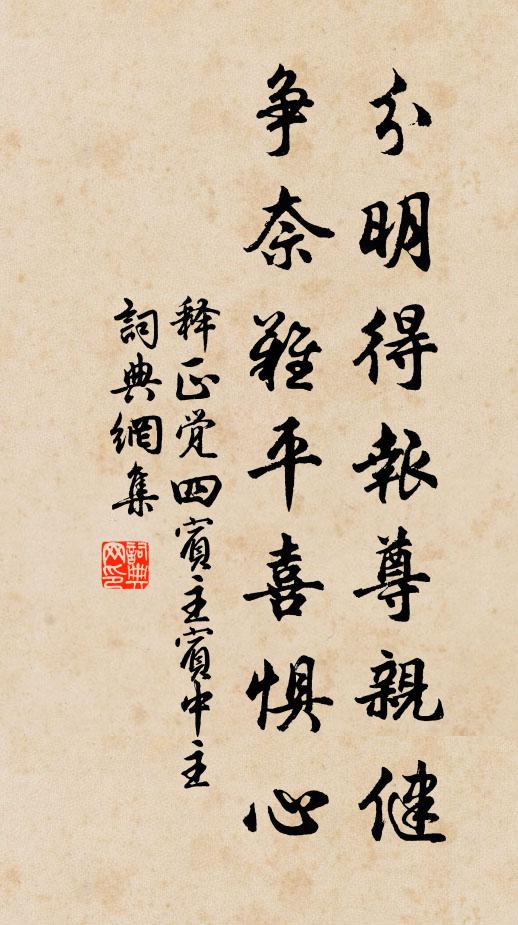 分明得報尊親健
争奈難平喜惧心
释正覚四賓主賓中主
詞典網集
詞典網印